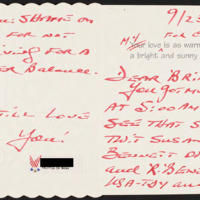 : SHAME ON
FOR NOT
IVING FOR A
ER BALANCE.
TILL LOVE
YOU!
9/23
MY FOR E
Your love is as warm
a bright and sunny
DEAR BRI
YOU GOT ME
AT 5:00 AM
SEE THAT S
TWIT SUSAN
BENNETT D
AND R. BEN
USA-TDY AN